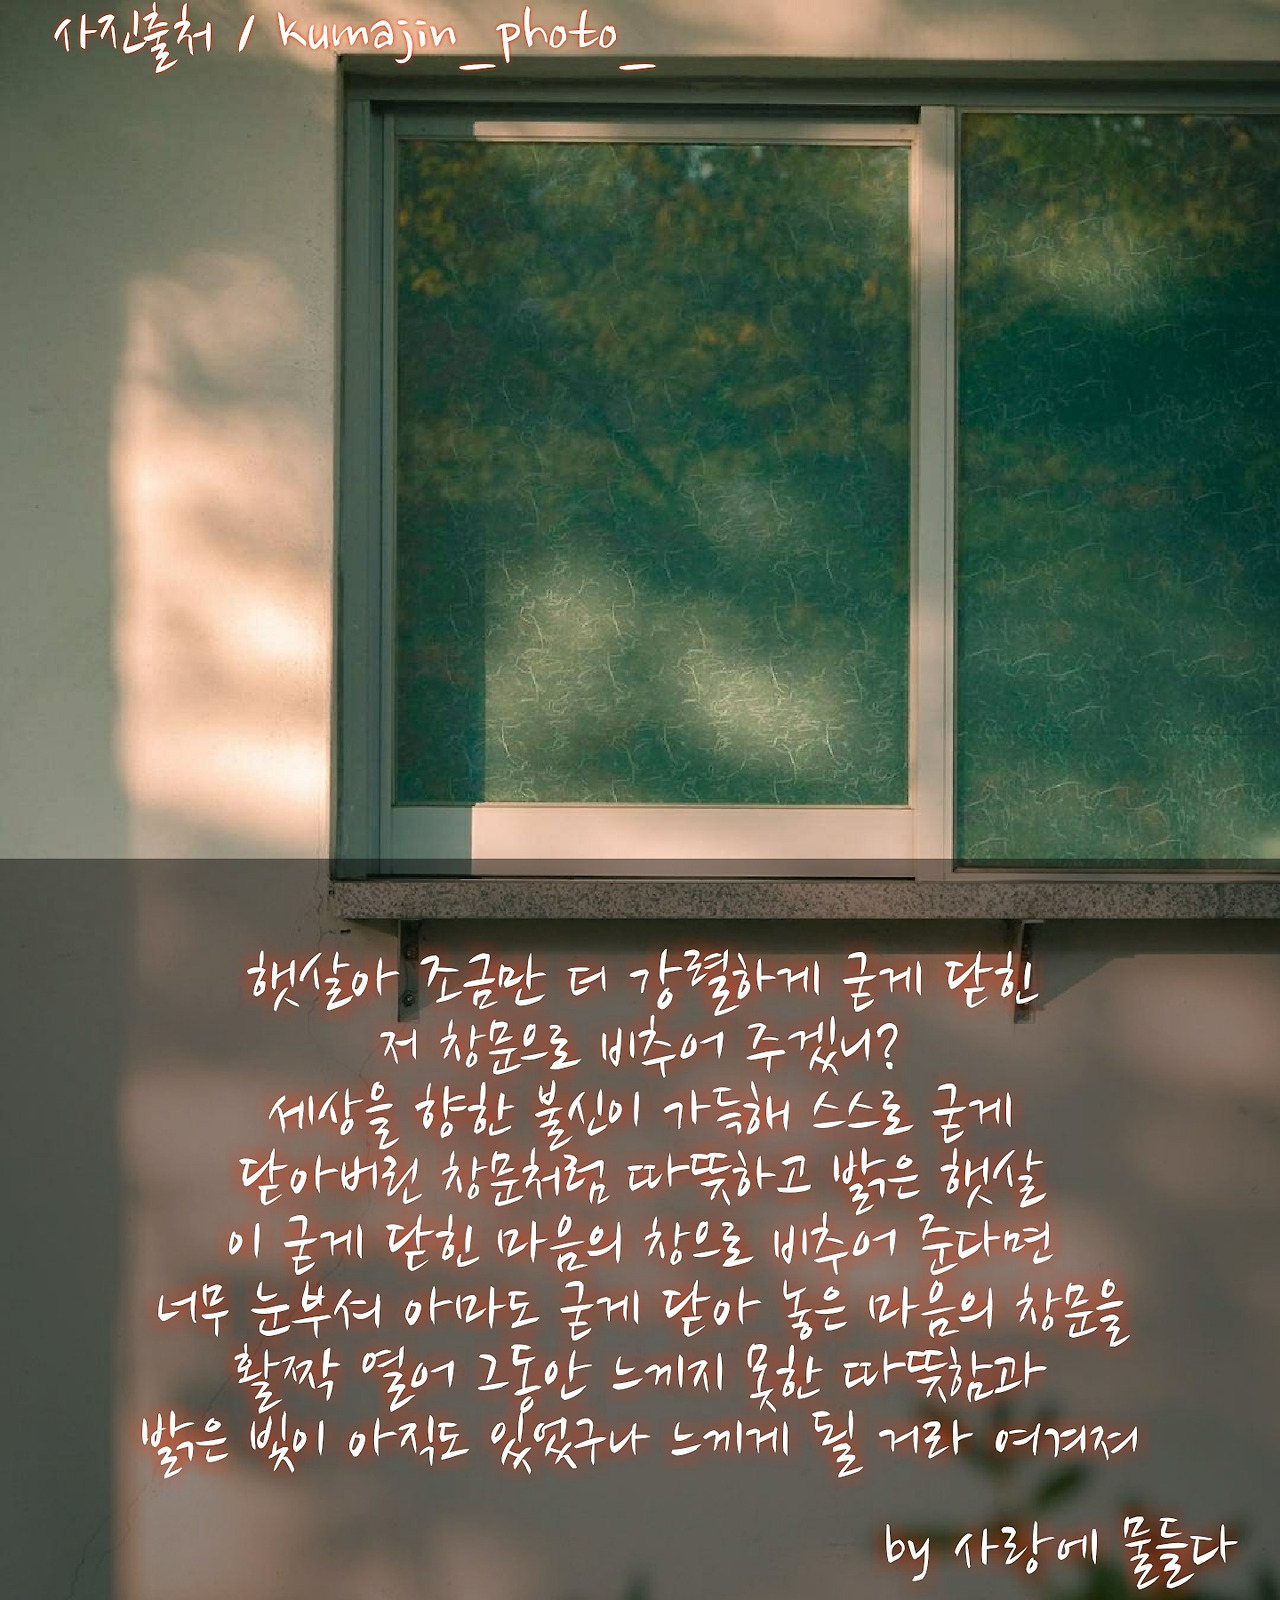 사진출처 / kumajin_photo_
햇살아 조금만 더 강렬하게 굳게 닫힌
저 창문으로 비추어 주겠니?
세상을 향한 불신이 가득해 스스로 굳게
닫아버린 창문처럼 따뜻하고 밝은 햇살
이 굳게 닫힌 마음의 창으로 비추어 준다면
너무 눈부셔 아마도 굳게 닫아 놓은 마음의 창문을
활짝 열어 그동안 느끼지 못한 따뜻함과
밝은 빛이 아직도 있었구나 느끼게 될 거라 여겨져
by 사랑에 물들다